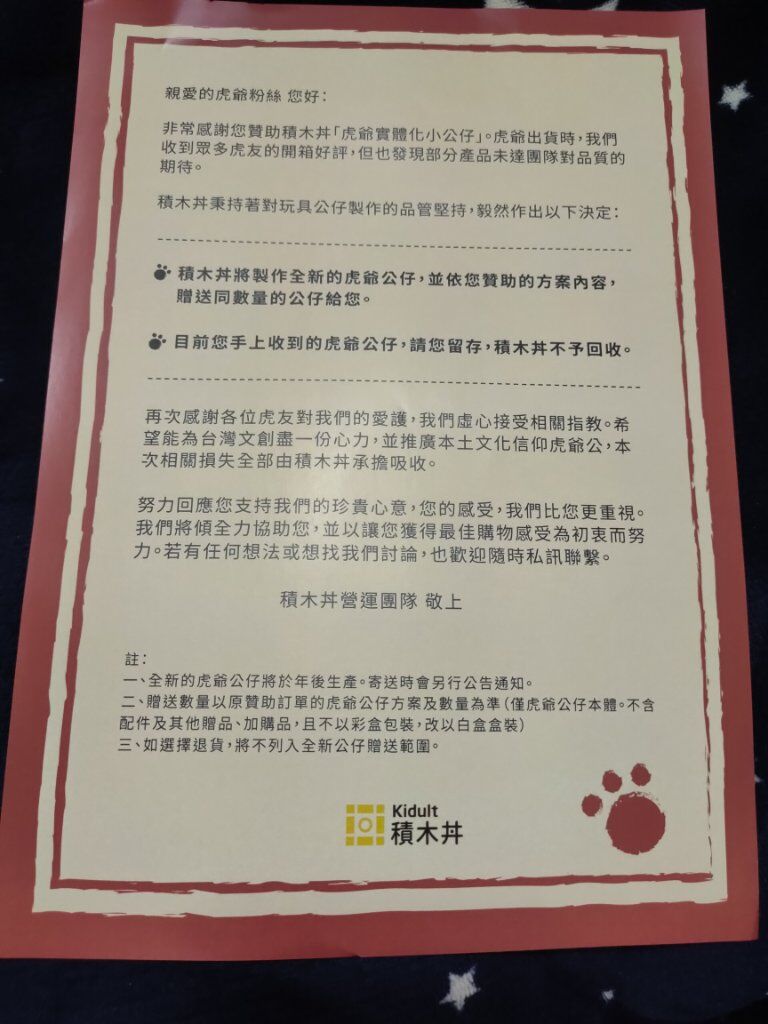 親愛的虎爺粉絲 您好：
非常感謝您贊助積木丼「虎爺實體化小公仔」。虎爺出貨時，我們
收到眾多虎友的開箱好評，但也發現部分產品未達團隊對品質的
期待。
積木丼秉持著對玩具公仔製作的品管堅持，毅然作出以下決定：
積木丼將製作全新的虎爺公仔，並依您贊助的方案內容，
贈送同數量的公仔給您。
目前您手上收到的虎爺公仔，請您留存，積木丼不予回收。
再次感謝各位虎友對我們的愛護，我們虛心接受相關指教。希
望能為台灣文創盡一份心力，並推廣本土文化信仰虎爺公，本
次相關損失全部由積木丼承擔吸收。
努力回應您支持我們的珍貴心意，您的感受，我們比您更重視。
我們將傾全力協助您，並以讓您獲得最佳購物感受為初衷而努
力。若有任何想法或想找我們討論，也歡迎隨時私訊聯繫。
積木丼營運團隊 敬上
註：
一、全新的虎爺公仔將於年後生產。寄送時會另行公告通知。
二、贈送數量以原贊助訂單的虎爺公仔方案及數量為準（僅虎爺公仔本體。不含
配件及其他贈品、加購品，且不以彩盒包裝，改以白盒盒裝）
三、如選擇退貨，將不列入全新公仔贈送範圍。
Kidult
積木丼